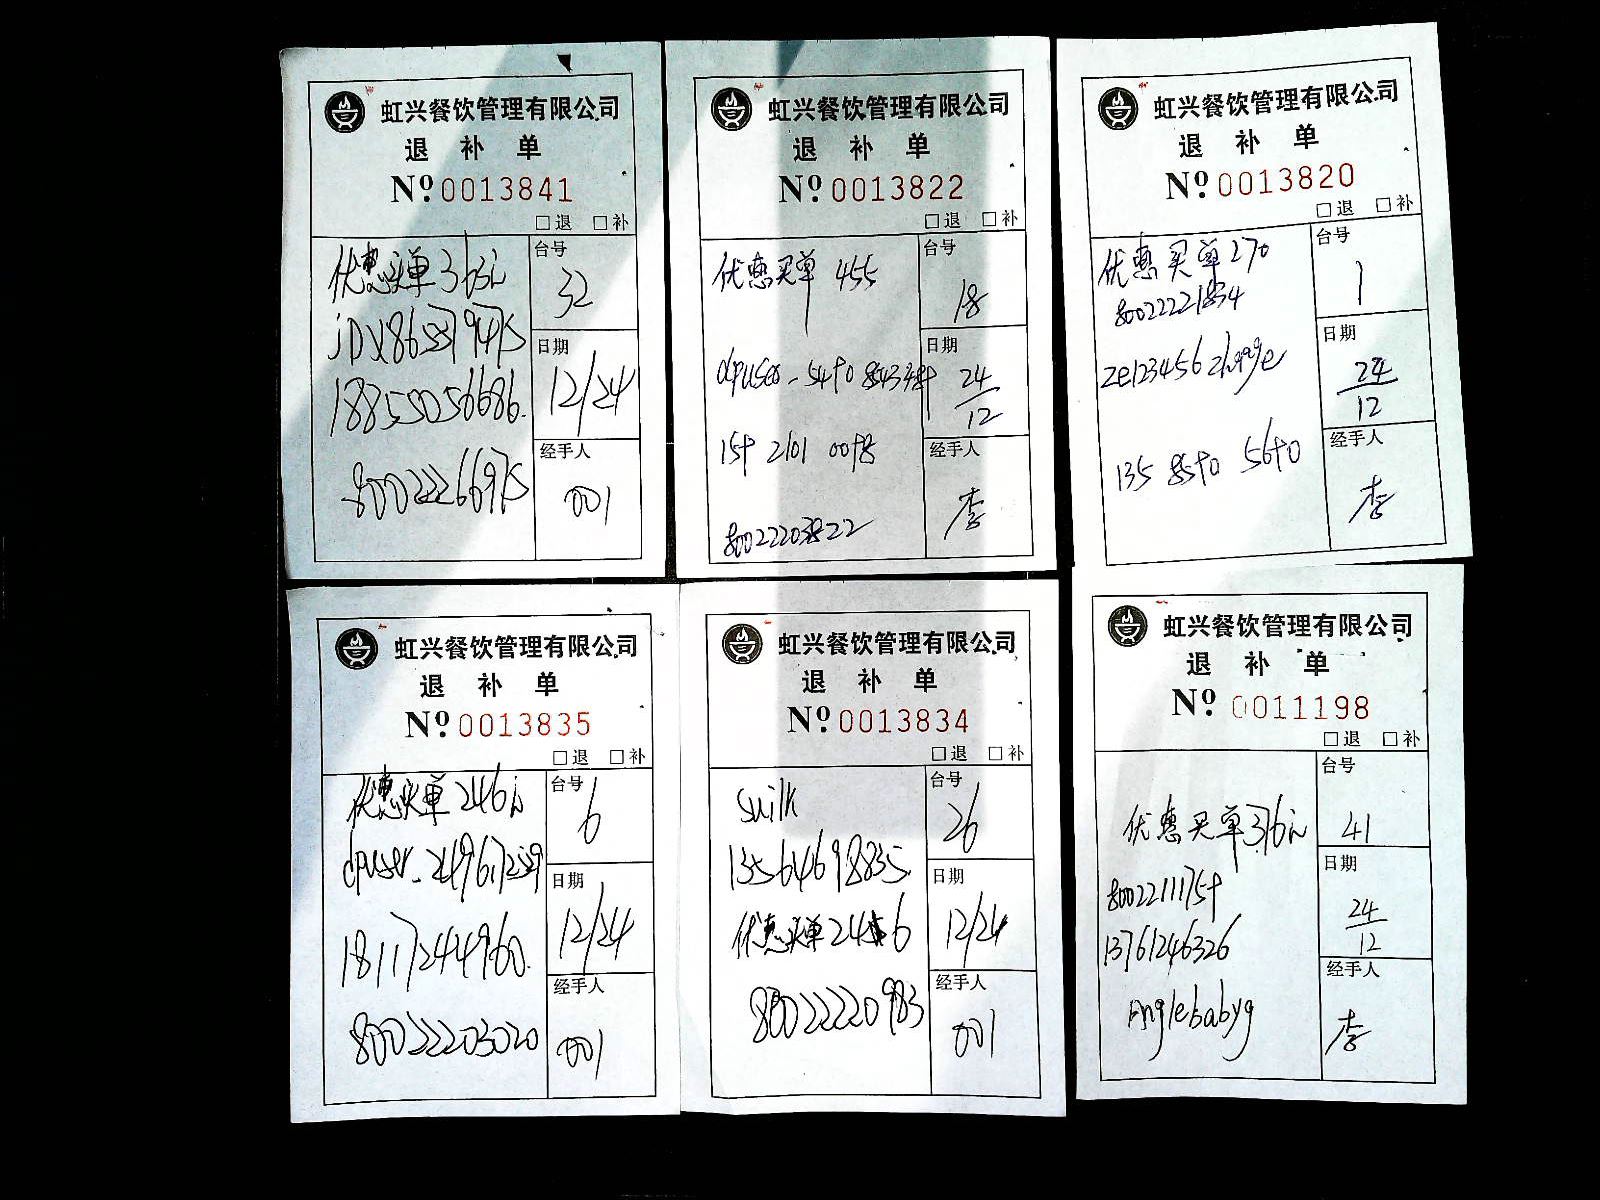 虹兴餐饮管理有限公司
退 补 单
№ 0013841
□退 □补
优惠买单363元
台号
32
日期
12/24
18855056686.
经手人
001
80022266975
虹兴餐饮管理有限公司
退 补 单
№ 0013822
□退 □补
优惠买单 455
台号
18
日期
24/12
经手人
李
80022203822
虹兴餐饮管理有限公司
退 补 单
№ 0013820
□退 □补
优惠买单 270
80022221834
台号
1
日期
24/12
135 8570 5670
经手人
李
虹兴餐饮管理有限公司
退 补 单
№ 0013835
□退 □补
优惠买单246元
台号
6
日期
12/24
18117244960.
经手人
001
80022203020
虹兴餐饮管理有限公司
退 补 单
№ 0013834
□退 □补
suilk
台号
26
13564698835.
日期
12/24
优惠买单 246
经手人
001
80022220983
虹兴餐饮管理有限公司
退 补 单
№ 0011198
□退 □补
优惠买单376元
台号
41
80022111757
日期
24/12
13761246326
经手人
李
Anglebabyg